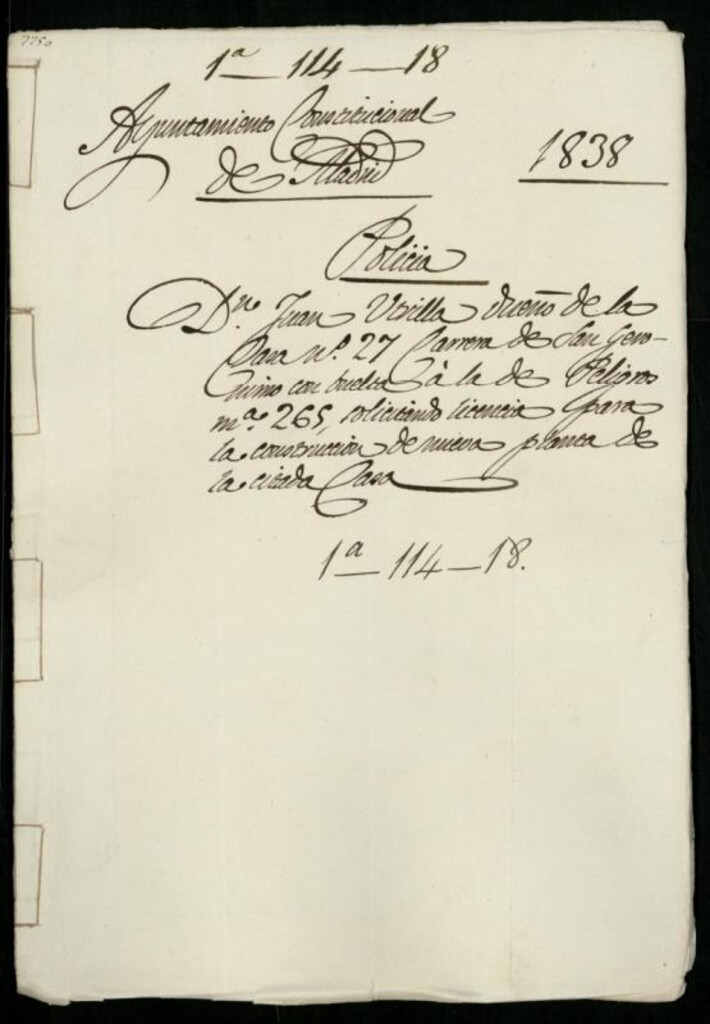 1ª — 114 — 18
Ayuntamiento Constitucional
de Madrid
1838
Policia
Dn. Juan Utrilla dueño de la
Casa nº. 27 Carrera de San Gero-
nimo con buelta à la de Peligros
mª. 265, solicitando licencia para
la construccion de nueva planta de
la citada Casa
1ª — 114 — 18.